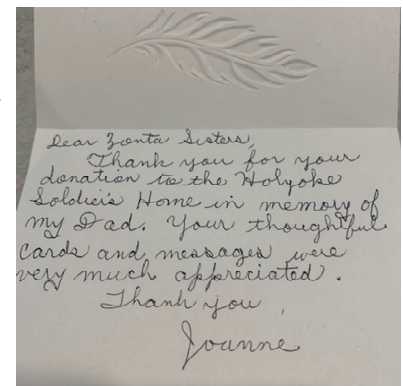 Dear Zonta Sisters,
Thank you for your
donation to the Holyoke
Soldier's Home in memory of
my Dad. Your thoughtful
cards and messages were
very much appreciated.
Thank you,
Joanne